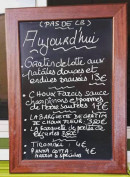 (PAS DE CB)
Aujourd'hui
Gratin de lotte aux
patates douces et
endives braisées 13€
• Choux Farcis sauce
champignons et pommes
de terre sautées
LA BARQUETTE DE GRATIN
DE CHOUX FLEUR
La barquette de poêlée de
légumes
TIRAMISU : 4€
4€